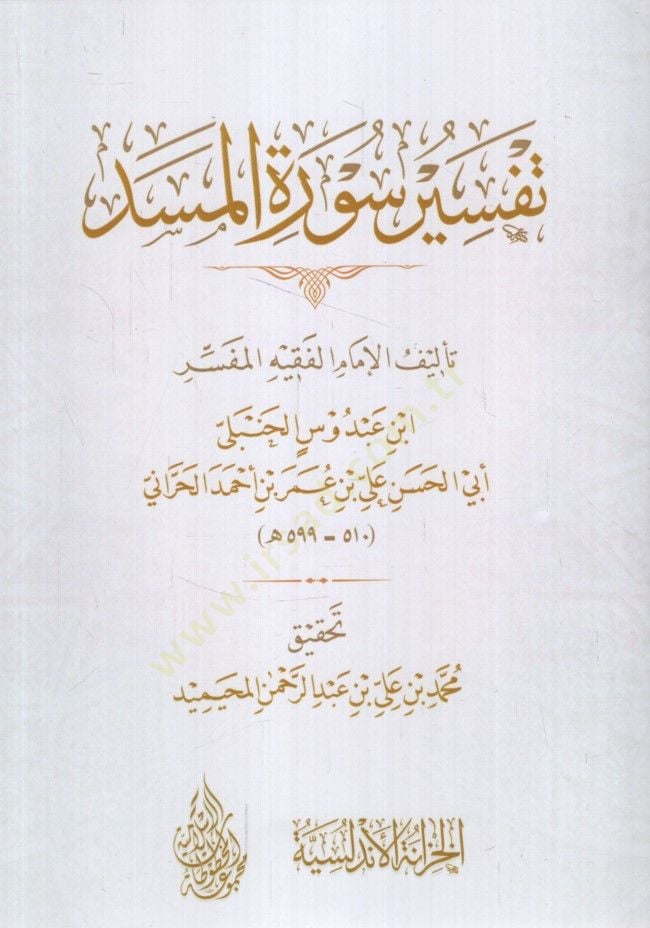 تَفْسِيرُ سُورَةِ المَسَدِ
تأليفُ الإمَامِ الفَقِيهِ المفَسِّرِ
ابْنِ عَبْدُوْسٍ الحَنْبَلِيِّ
أَبِي الحَسَنِ عَلِيِّ بْنِ عُمَرَ بْنِ أَحْمَدَ الحَرَّانِيِّ
(٥١٠ - ٥٩٩ هـ)
تَحْقِيْق
مُحَمَّدِ بْنِ عَلِيِّ بْنِ عَبْدِ الرَّحْمٰنِ المحَيْمِيْد
الخِزَانَةُ الأَنْدَلُسِيَّةُ
www.irsad.com.tr